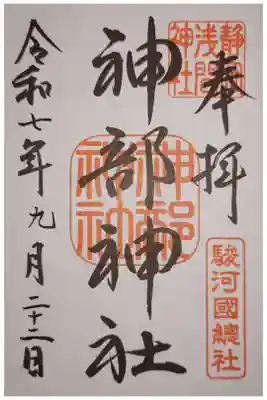 奉拝
静岡浅間神社
駿河國總社
神部神社
神部神社
令和七年九月二十二日